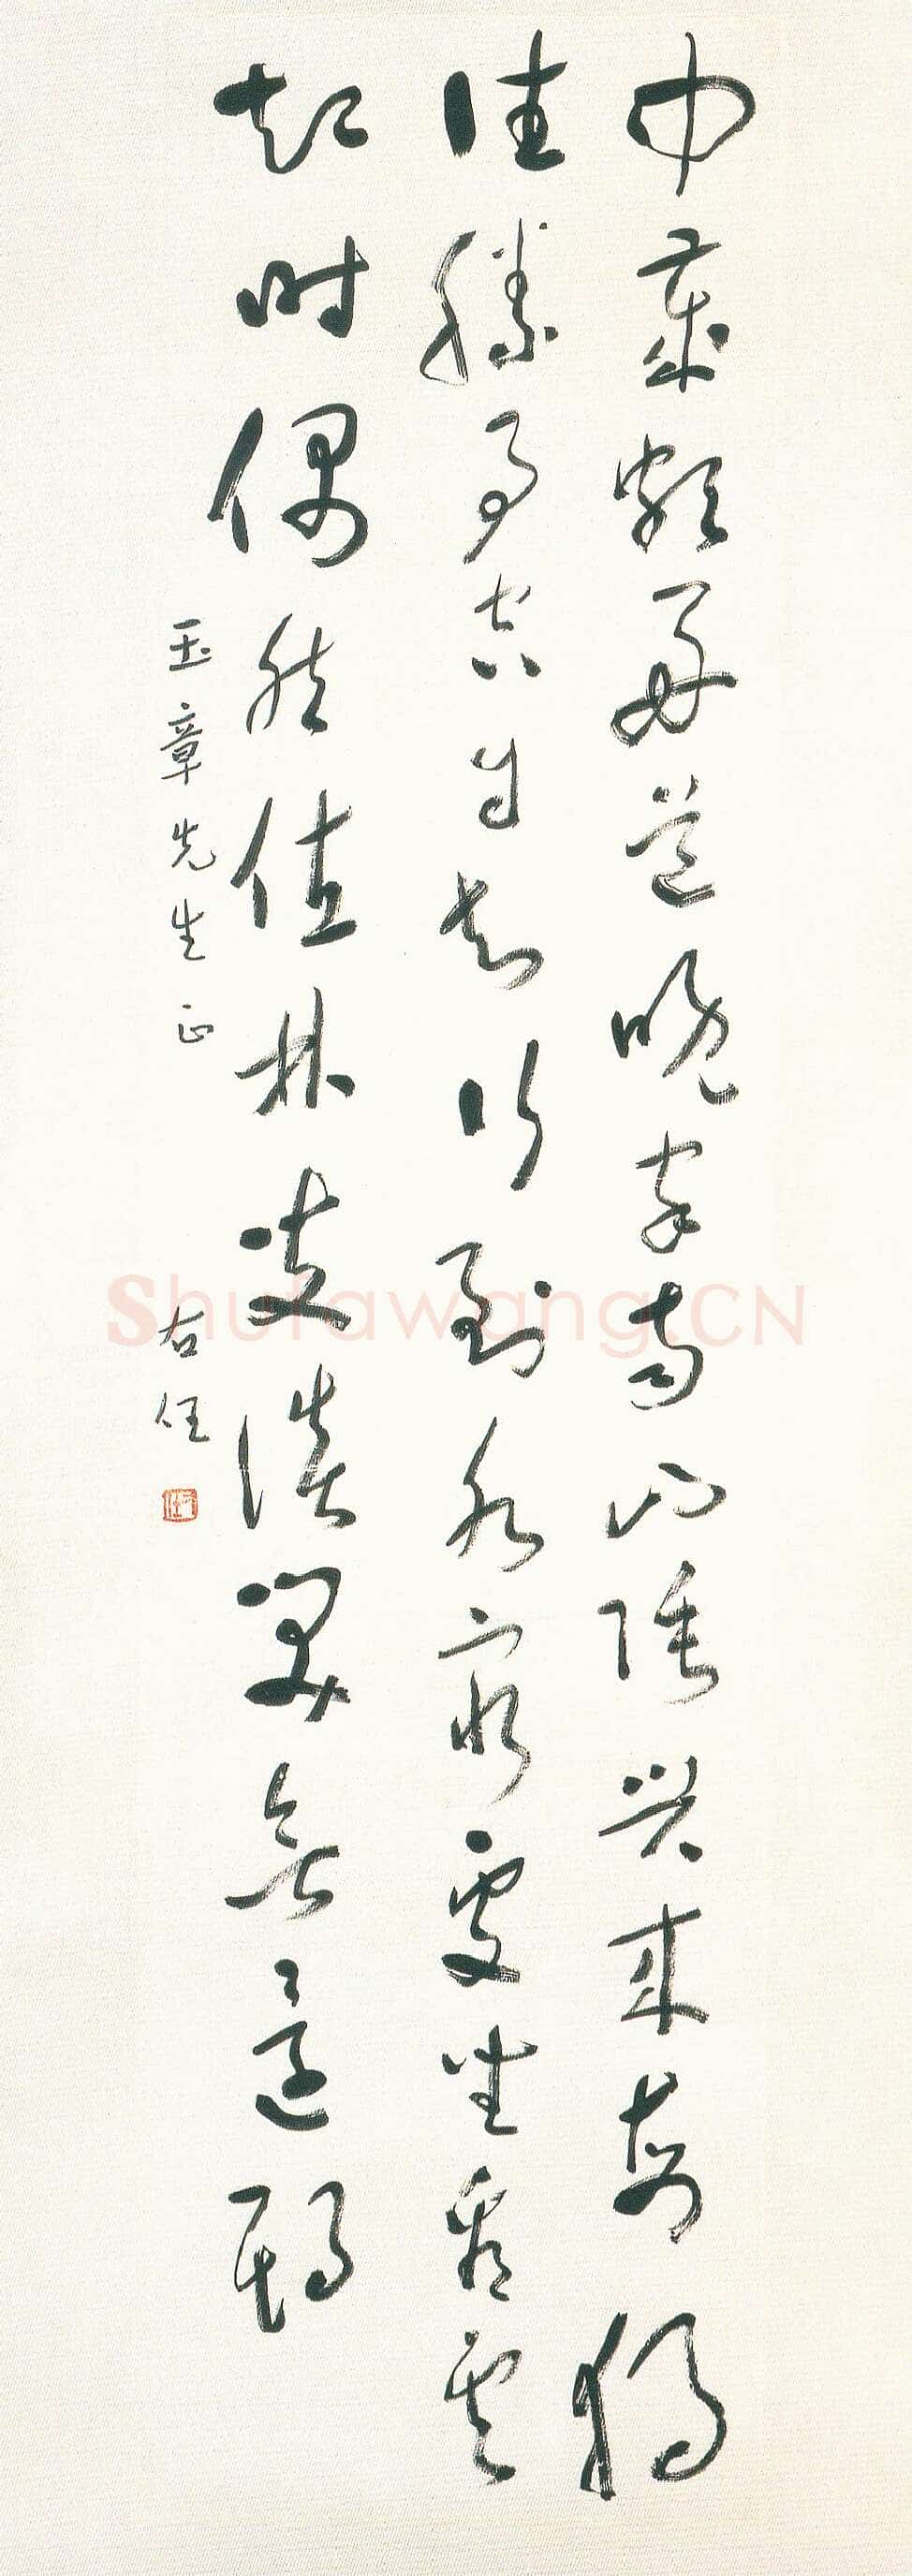 中歲頗好道晚家南山陲興來每獨
往勝事空自知行到水窮處坐看雲
起時偶然值林叟談笑無還期
玉章先生正
右任
Shufawang.CN